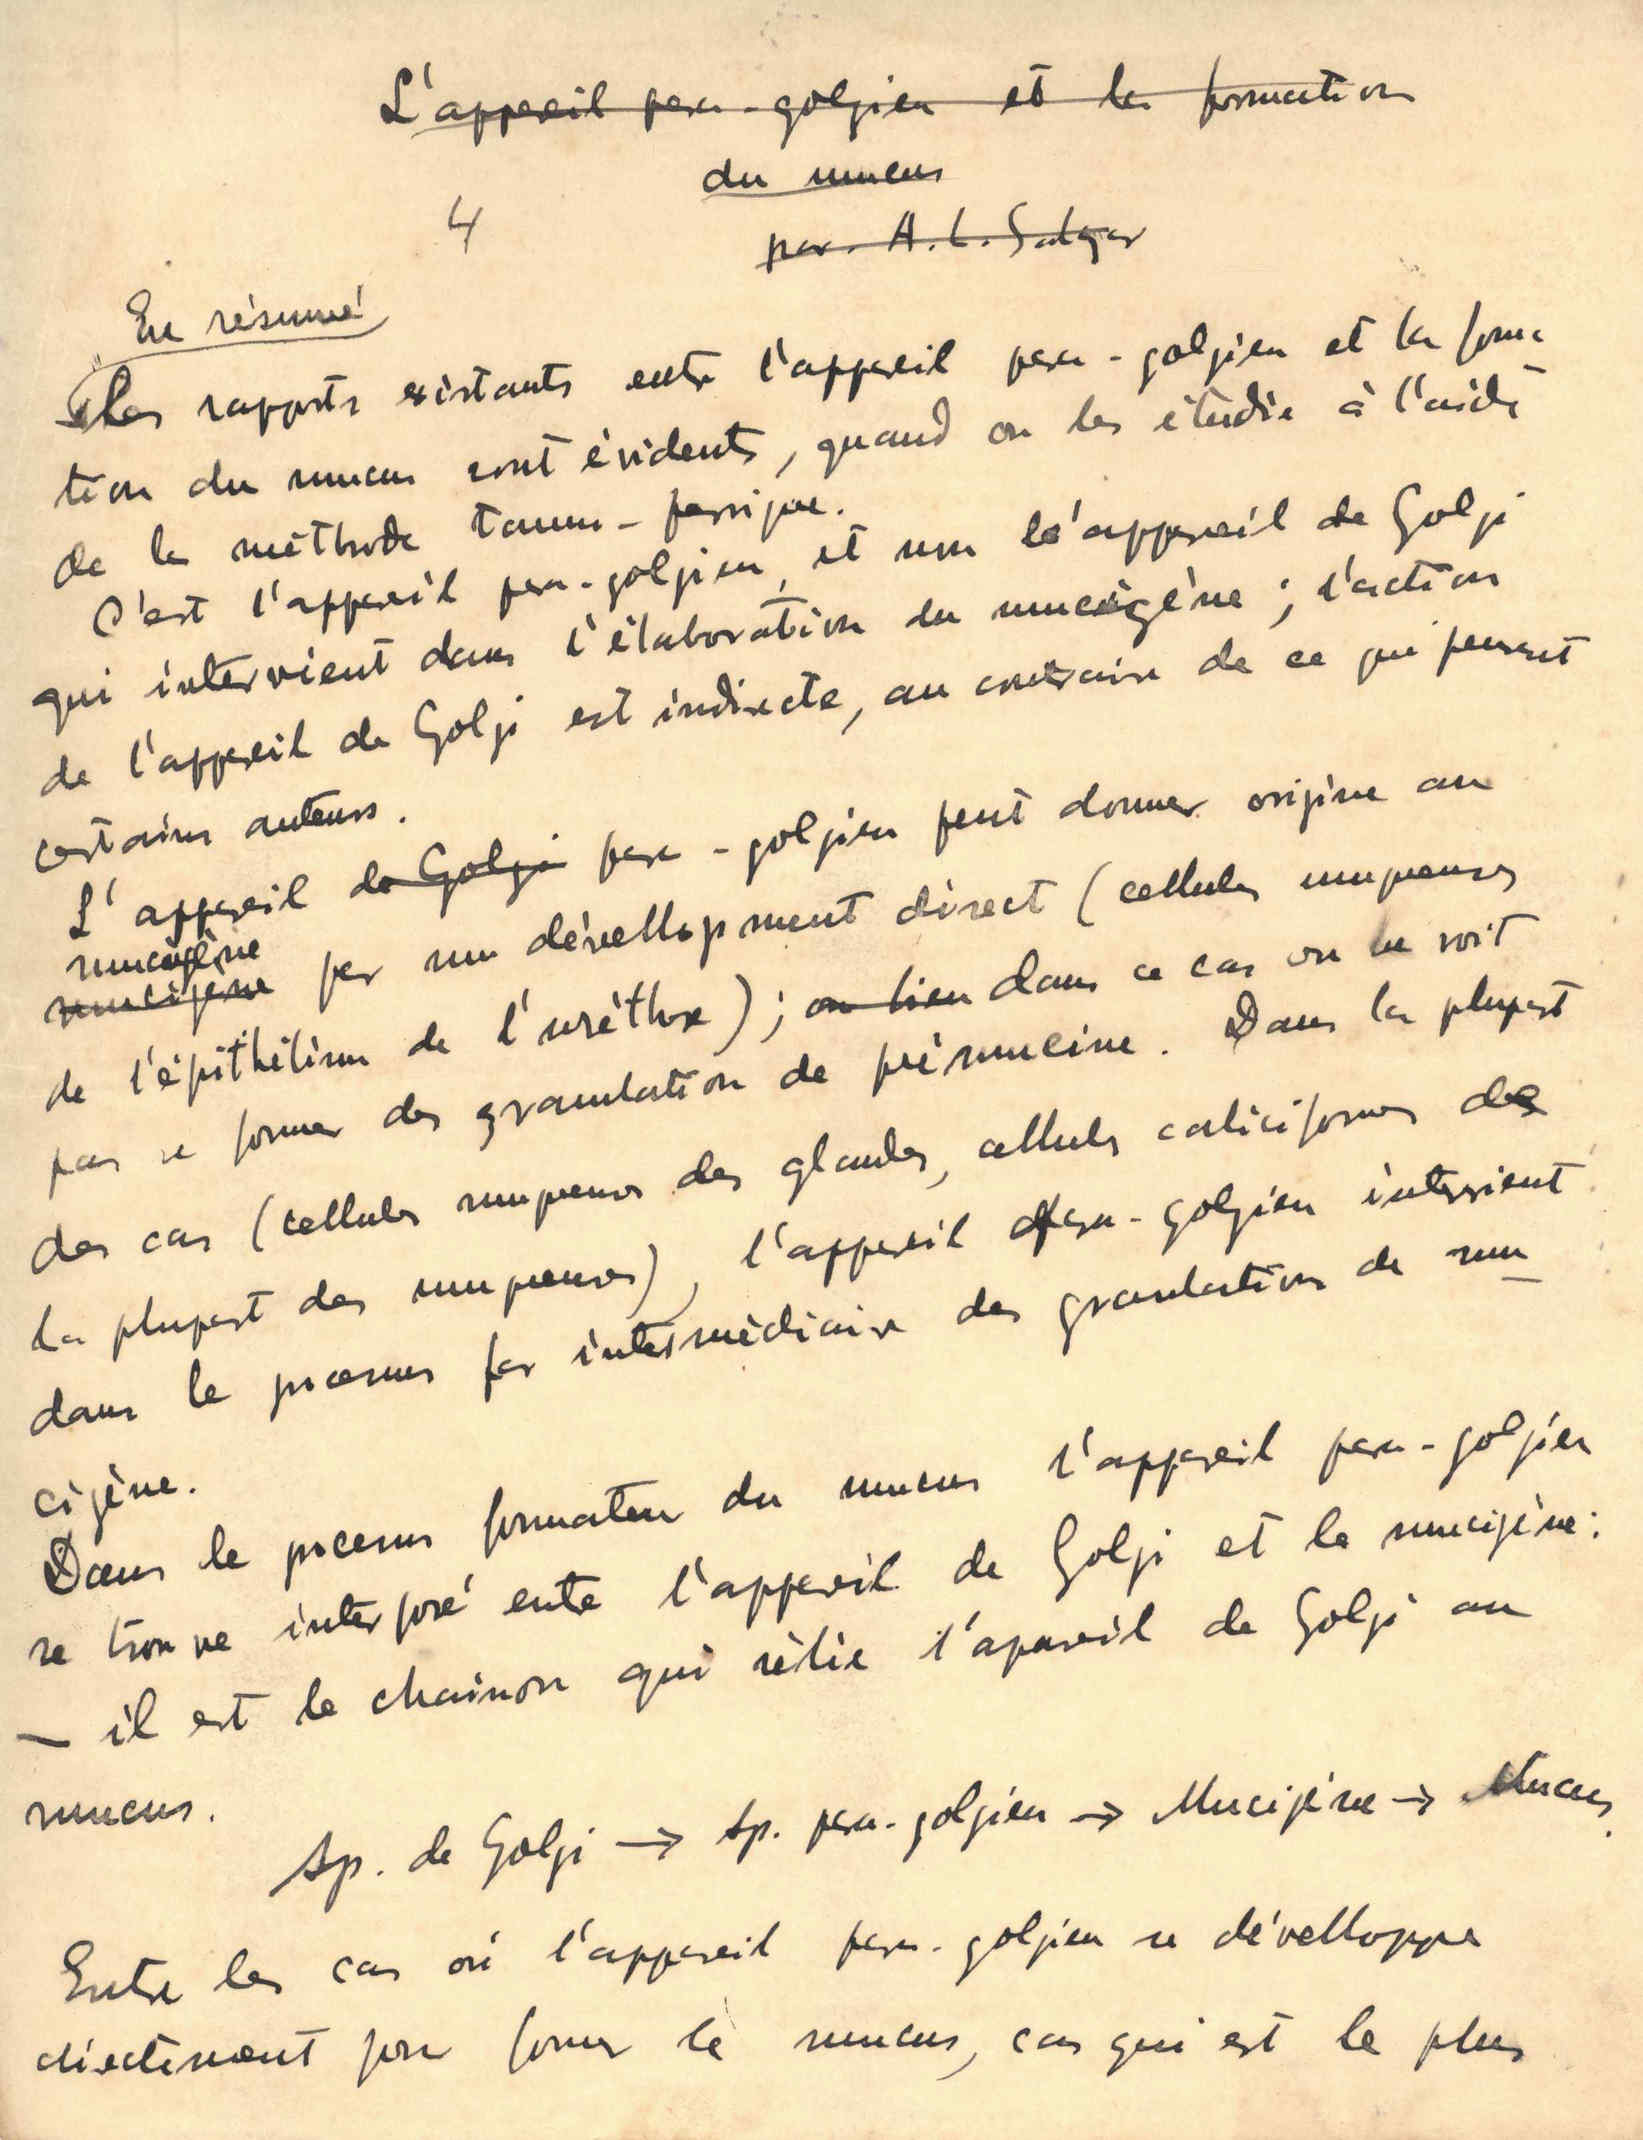 L'appareil para-golgien et la formation
du mucus
4
par A. L. Salazar
En résumé
Les rapports existants entre l'appareil para-golgien et la forma
tion du mucus sont évidents, quand on les étudie à l'aide
de la méthode tanno-ferrique.
C'est l'appareil para-golgien, et non l'appareil de Golgi
qui intervient dans l'élaboration du mucigène; l'action
de l'appareil de Golgi est indirecte, au contraire de ce qui pensent
certains auteurs.
L'appareil de Golgi para-golgien peut donner origine au
mucigène
mucigene par un dévellopment direct (cellules muqueuses
de l'épithélium de l'urèthre); ou bien dans ce cas on ne voit
pas se former des granulation de prémucine. Dans la plupart
des cas (cellules muqueuses des glandes, cellules caliciformes de
la plupart des muqueuses), l'appareil para-golgien intervient
dans le procesus par intermédiaire des granulation de mu-
cigène.
Dans le procesus formateur du mucus l'appareil para-golgien
se trouve interposé entre l'appareil de Golgi et le mucigène:
— il est le chainon qui rélie l'apareil de Golgi au
mucus.
Ap. de Golgi → Ap. para-golgien → Mucigène → Mucus.
Entre les cas où l'appareil para-golgien se dévelloppe
directement pour former le mucus, cas qui est le plus